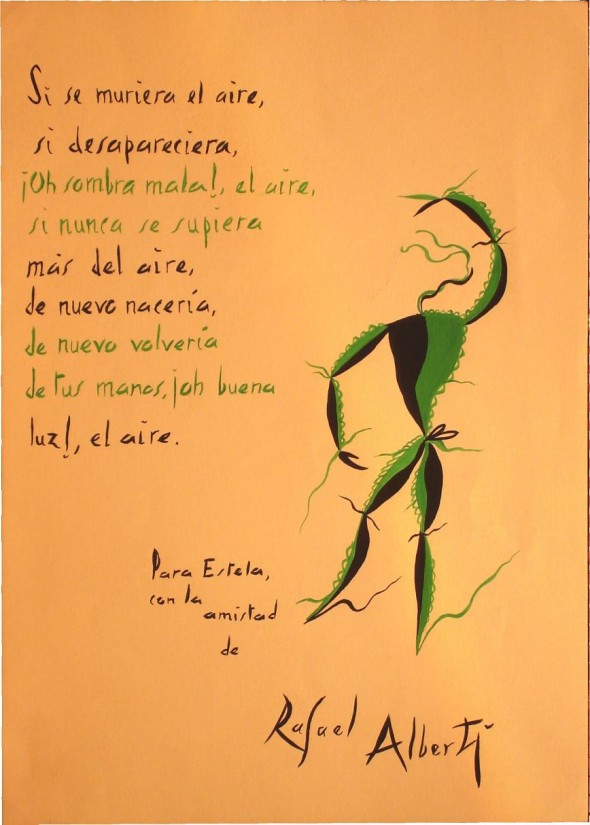 Si se muriera el aire,
si desapareciera,
¡Oh sombra mala!, el aire,
si nunca se supiera
más del aire,
de nuevo nacería,
de nuevo volvería
de tus manos, ¡oh buena
luz!, el aire.
Para Estela,
con la
amistad
de
Rafael Alberti